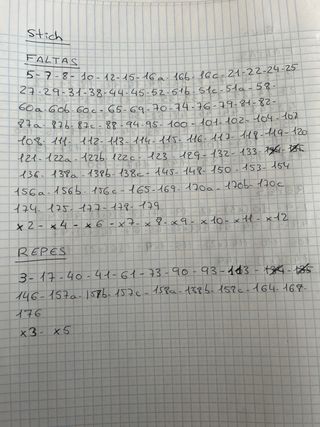 Stich
FALTAS
5-7-8-10-12-15-16a-16b-16c-21-22-24-25
27-29-31-38-44-45-52-51b-51c-51a-58-
60a-60b-60c-65-69-70-74-76-79-81-82-
87a-87b-87c-88-94-95-100-101-102-104-107
108-111-112-113-114-115-116-117-118-119-120
121-122a-122b-122c-123-129-132-133-
136-138a-138b-138c-145-148-150-153-154
156a-156b-156c-165-169-170a-170b-170c
174-175-177-178-179
x2-x4-x6-x7-x8-x9-x10-x11-x12
REPES
3-17-40-41-61-73-90-93-113-
146-157a-157b-157c-158a-158b-158c-164-168-
176
x3- x5